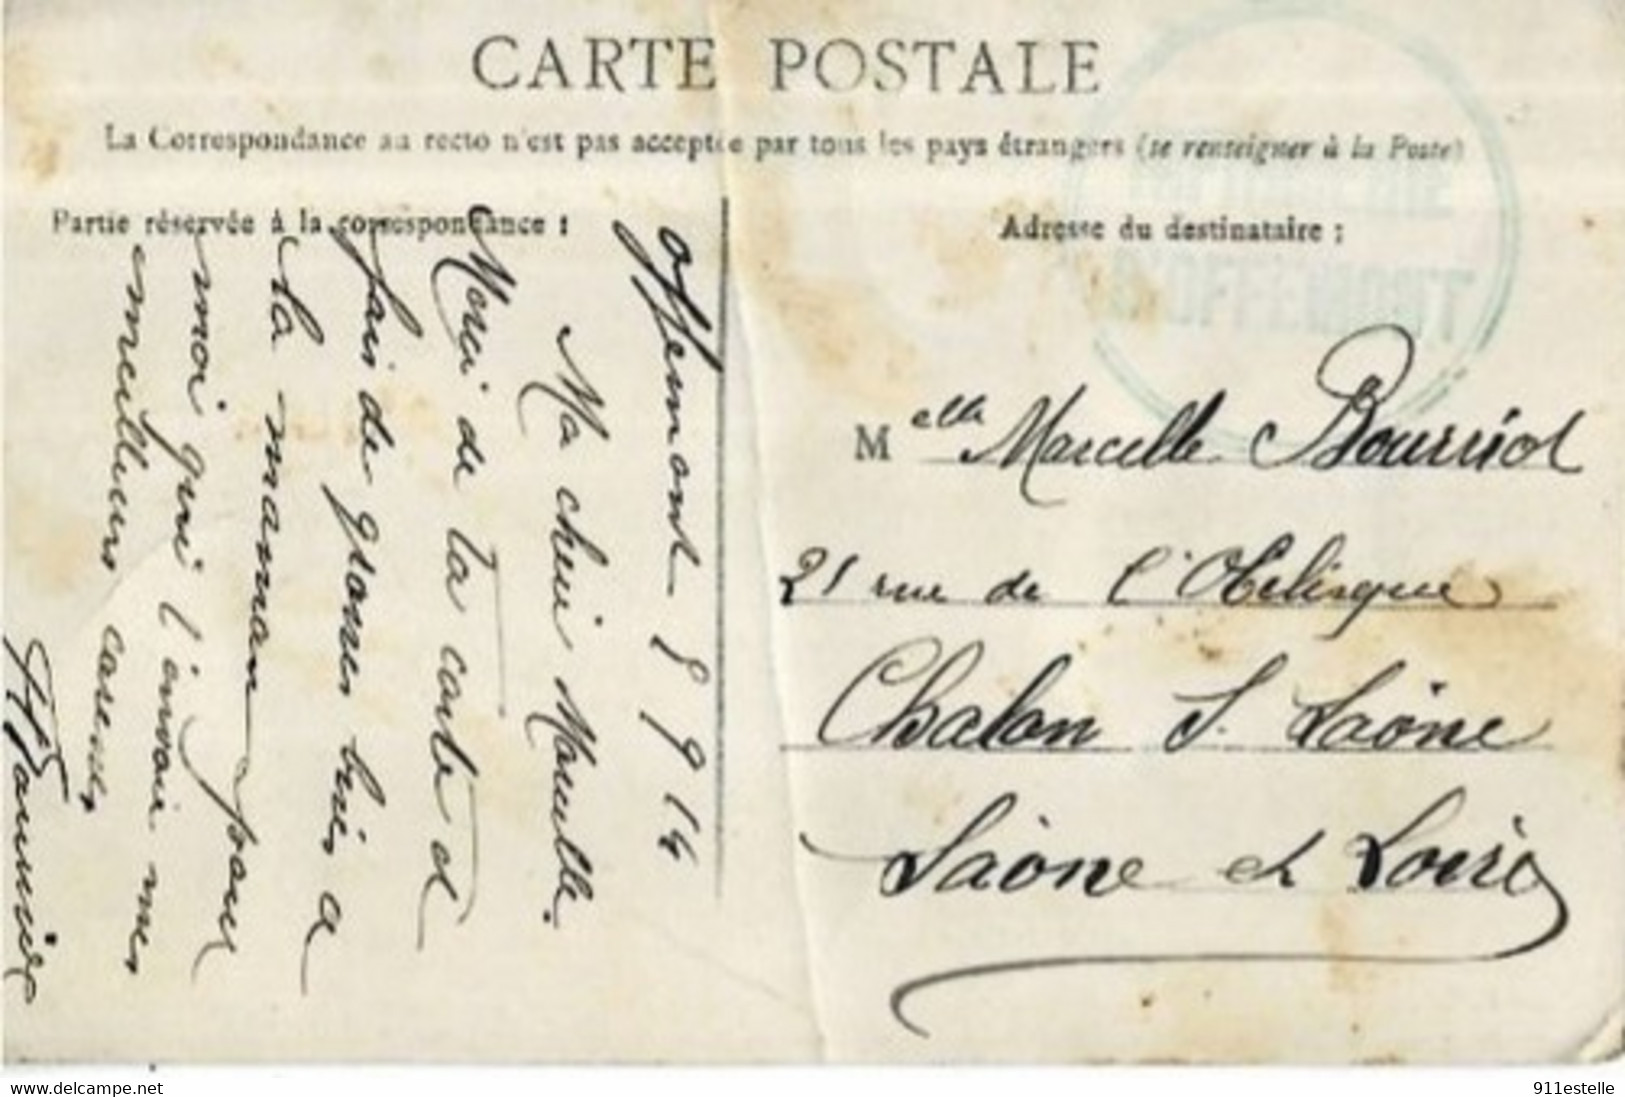 CARTE POSTALE
La Correspondance au recto n'est pas acceptée par tous les pays étrangers (se renseigner à la Poste)
Partie réservée à la correspondance :
Offemont 8 9 14
Ma cheri Marcelle.
Merci de ta carte et
fais de grosses bises a
ta maman pour
moi qui t'envoie mes
meilleurs caresses
Adresse du destinataire :
D'OFFEMONT
Melle Marcelle Bourriot
21 rue de l'Obélisque
Chalon S. Saône
Saône et Loire
www.delcampe.net
911estelle